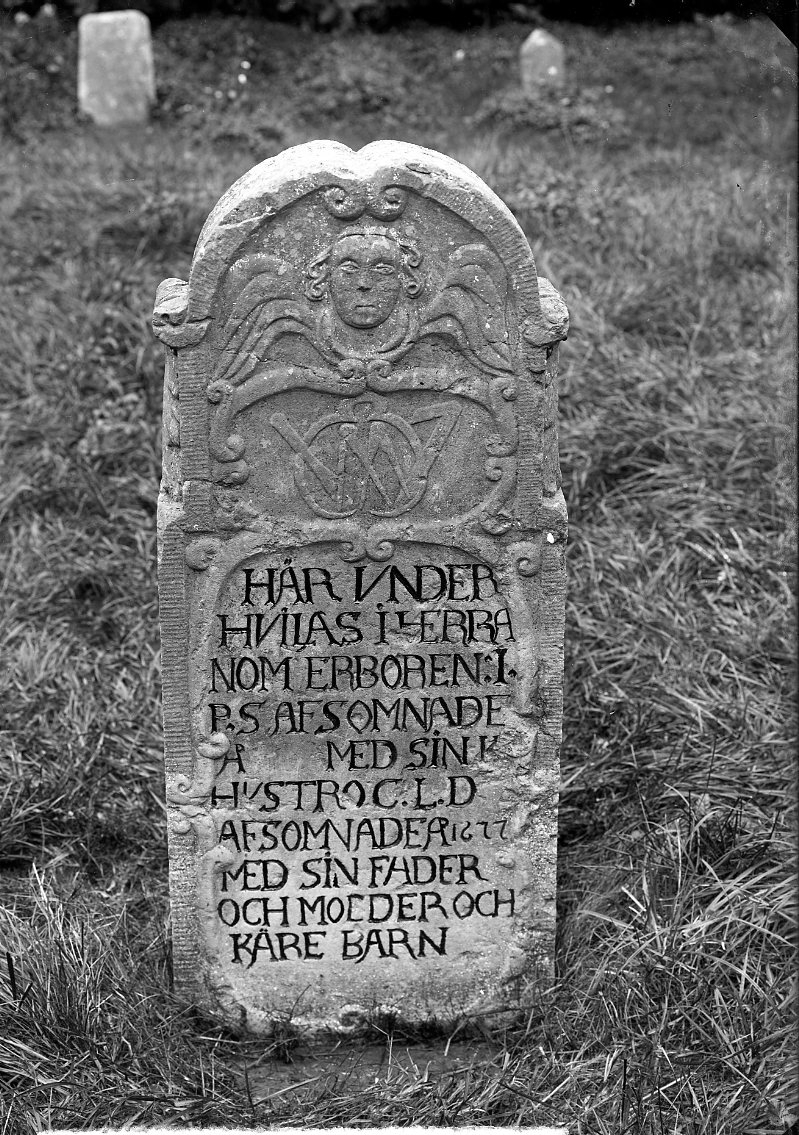 HÄR VNDER
HVILAS I HERRA
NOM ERBOREN: I.
P.S AFSOMNADE
Å MED SIN K
HVSTRO C.L.D
AFSOMNADER 1677
MED SIN FADER
OCH MOEDER OCH
KÄRE BARN